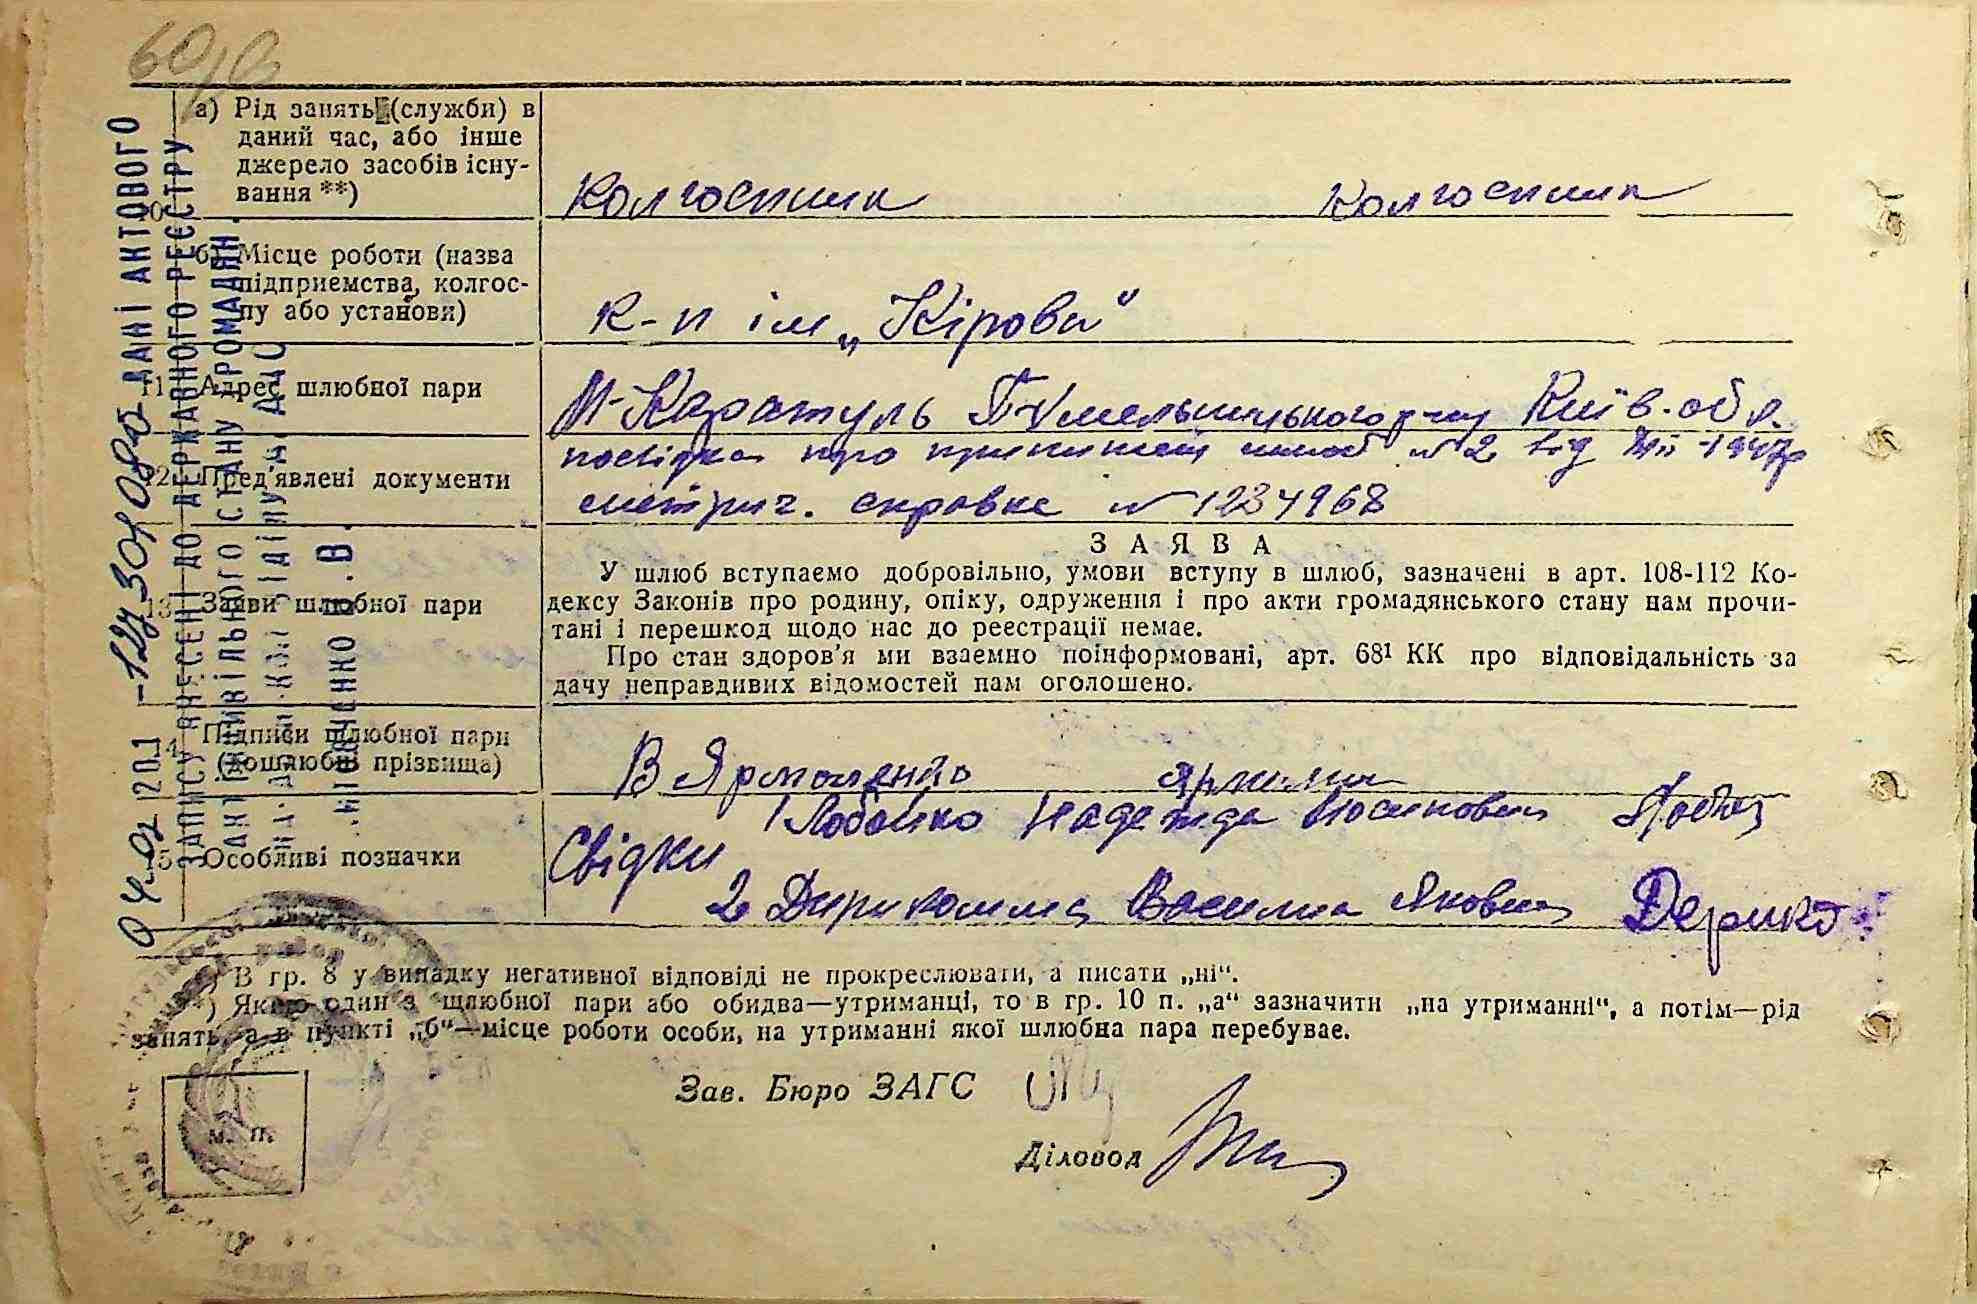 60
а) Рід занять (служби) в
даний час, або інше
джерело засобів існу-
вання **)
Колгоспник Колгоспник
10
б) Місце роботи (назва
підприємства, колгос-
пу або установи)
к-п ім „Кірова"
11. Адрес шлюбної пари
М-Каратуль Київ. обл.
12. Пред'явлені документи
посвідка про шлюб № 2 від
метрич. справка № 1234968
13. Заяви шлюбної пари
ЗАЯВА
У шлюб вступаємо добровільно, умови вступу в шлюб, зазначені в арт. 108-112 Ко-
дексу Законів про родину, опіку, одруження і про акти громадянського стану нам прочи-
тані і перешкод щодо нас до реєстрації немає.
Про стан здоров'я ми взаємно поінформовані, арт. 68¹ КК про відповідальність за
дачу неправдивих відомостей нам оголошено.
14. Підписи шлюбної пари
(дошлюбні прізвища)
В Ярмоленко
15. Особливі позначки
Свідки
1 Лобойко Надежда
2 Василина Яковна Дерико
*) В гр. 8 у випадку негативної відповіді не прокреслювати, а писати „ні".
**) Якщо один з шлюбної пари або обидва—утриманці, то в гр. 10 п. „а" зазначити „на утриманні", а потім—рід
занять, а в пункті „б"—місце роботи особи, на утриманні якої шлюбна пара перебуває.
Зав. Бюро ЗАГС
Діловод
М. П.
ДАНІ АКТОВОГО
ЗАПИСУ ВНЕСЕНІ ДО ДЕРЖАВНОГО РЕЄСТРУ
АКТІВ ЦИВІЛЬНОГО СТАНУ ГРОМАДЯН.